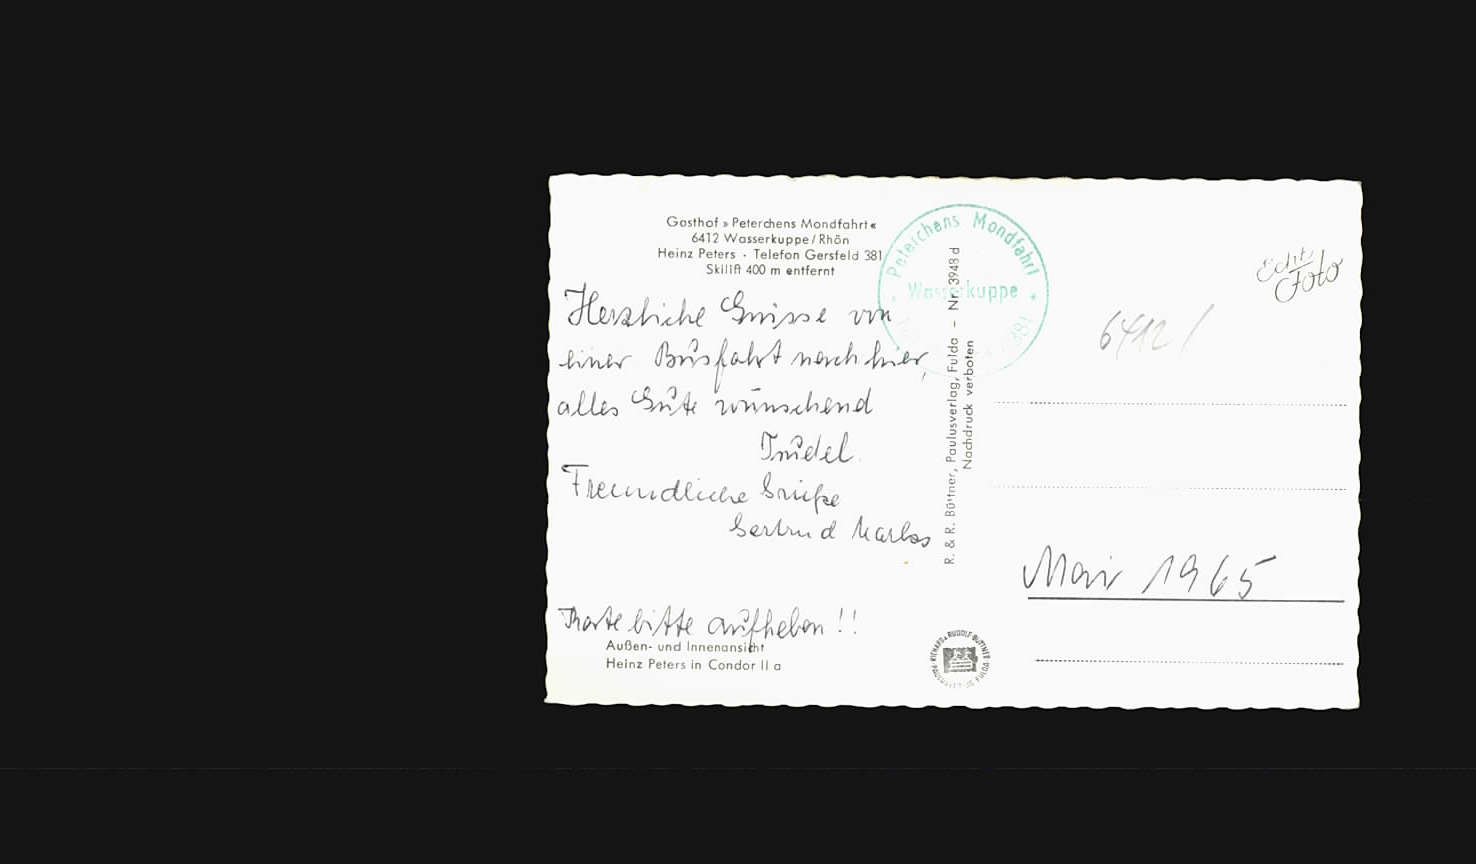 Gasthof » Peterchens Mondfahrt «
6412 Wasserkuppe/Rhön
Heinz Peters · Telefon Gersfeld 381
Skilift 400 m entfernt
Herzliche Grüsse von
einer Busfahrt nach hier,
alles Gute wünschend
Trudel.
Freundliche Grüße
Gertrud
Karte bitte aufheben !!
Außen- und Innenansicht
Heinz Peters in Condor II a
Peterchens Mondfahrt
Wasserkuppe
381
R. & R. Büttner, Paulusverlag, Fulda – Nr. 3948 d
Nachdruck verboten
Echt
Foto
6412 /
Mai 1965